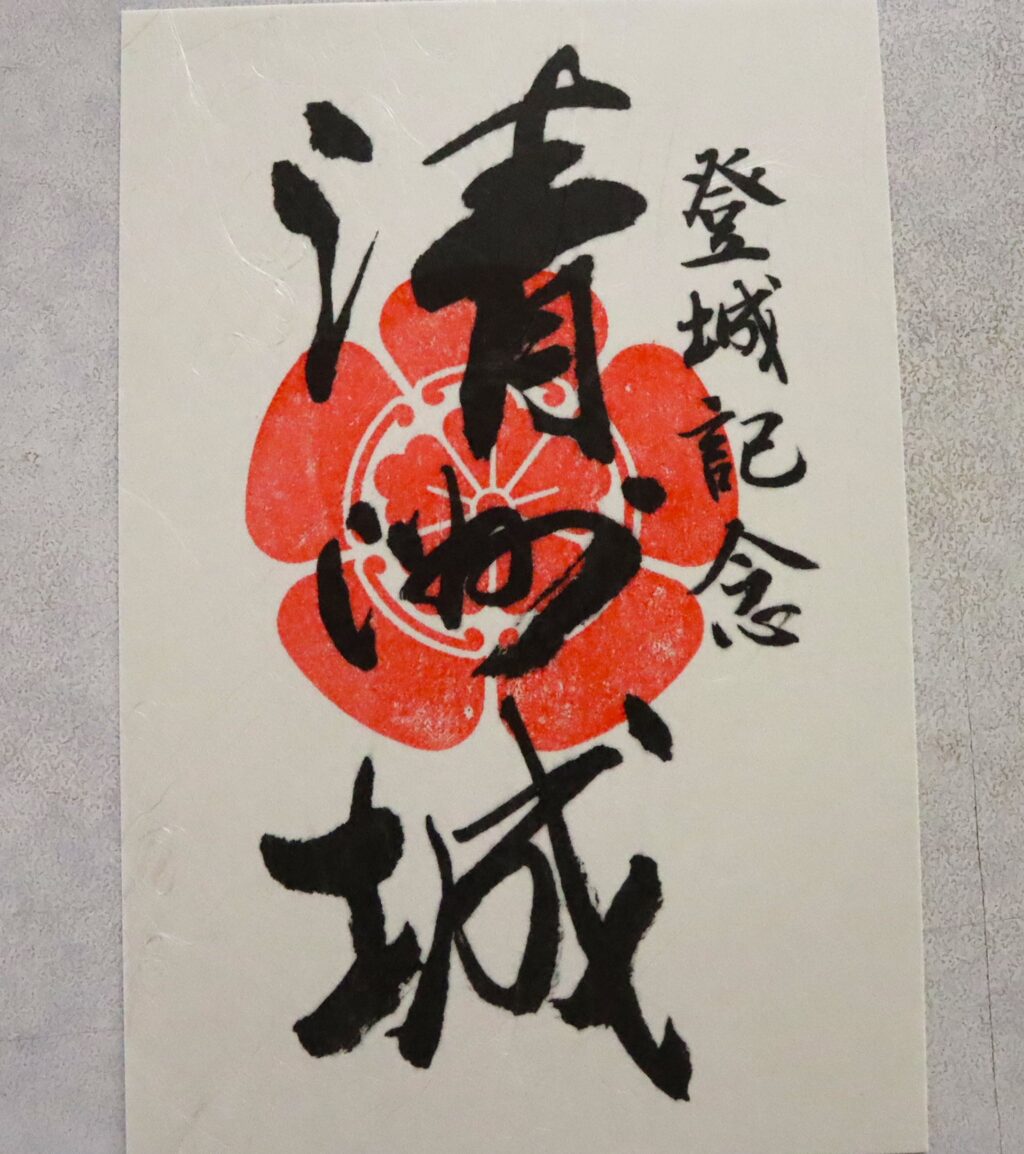 登城記念
清洲城